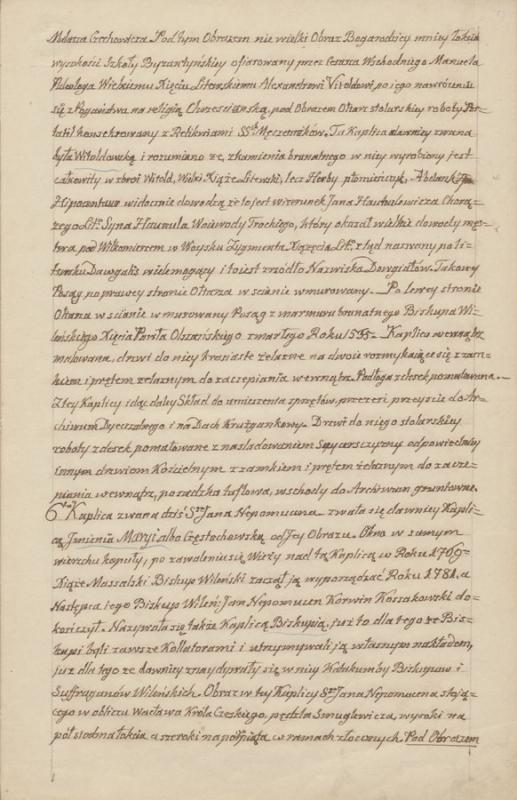 Pod tym Obrazem nie wielki Obraz Bogarodzicy mniey Łokcia
wysokości Szkoły Byzantyńskiey ofiarowany przez Cesarza Wschodniego Manuela
Paleologa Wielkiemu Xięciu Litewskiemu Alexandrowi Vitoldowi, po iego nawróceniu
się z Pogaństwa na religią Chrześcianską, pod Obrazem Ołtarz stolarskiey roboty Por=
tatil konsekrowany z Relikwiami SS. Męczenników. Ta Kaplica dawniey zwana
była Witoldowską i rozumiano że, z kamienia brunatnego w niey wyrobiony jest
całkowity w zbroi Witold, Wielki Xiąże Litewski, lecz Herby
Hipocentaur widocznie dowodzą że to jest wizerunek Jana Hawnulewicza Chorą=
zego Lit: Syna Hawnula Woiewody Trockiego, który okazał wielkie dowody męs=
twa pod Wilkomierzem w Woysku Zygmunta Xiążęcia Lit: ztąd nazwany po li=
tewsku Dawgalis wielemogący i to iest zrzódło Nazwiska Dowgiałów. Takowy
Posąg po prawey stronie Ołtarza w scianie wmurowany. Po lewey stronie
Ołtarza w scianie wmurowany Posąg z marmuru brunatnego Biskupa Wi=
leńskiego Xięcia Pawła Olszańskiego zmarłego Roku 1555. Kaplica w
malowana, drzwi do niey kratiaste żelazne na dwoie rozmykaiące się z zam=
kiem i prętem żelaznym do zaczepiania wewnątrz. Podłoga z desek pomalowana.
Z tey Kaplicy idąc daley Skład do umieszenia sprzętów, przez nie przeyście do Ar=
chiwum Dyecezalnego i na Dach Krużgankowy. Drzwi do niego stolarskiey
roboty z desek pomalowane z nasladowaniem odpowiedniey
innym drzwiom Kościelnym z zamkiem i prętem żelaznym do zacze=
piania wewnątrz, posadzka tuflowa, wschody do Archiwum gruntowne.
6ta Kaplica zwana dziś Sgo Jana Nepomucena zwała się dawniey Kapli=
cą Imienia Maryi albo Częstochowską od Jey Obrazu. Okno w samym
wierzchu kopuły, po zawaleniu się Wieży nad tą Kaplicą w Roku 1769
Xiąże Massalski Biskup Wileński zaczął ją wyporządzać Roku 1781. a
Następca iego Biskup Wileń: Jan Nepomucen Korwin Kossakowski do=
kończył. Nazywała się także Kaplicą Biskupią, już to dla tego że Bis=
kupi byli zawsze Kollatorami i utrzymywali ją własnym nakładem,
już dla tego że dawniey znaydywały się w niey Katakumby Biskupow i
Suffraganów Wileńskich. Obraz w tey Kaplicy Sgo Jana Nepomucena stoją=
cego w obliczu Wacława Króla Czeskiego, pędzla Smuglewicza, wysoki na
pół siodma łokcia a szeroki na półpiąta w ramach złoconych. Pod Obrazem